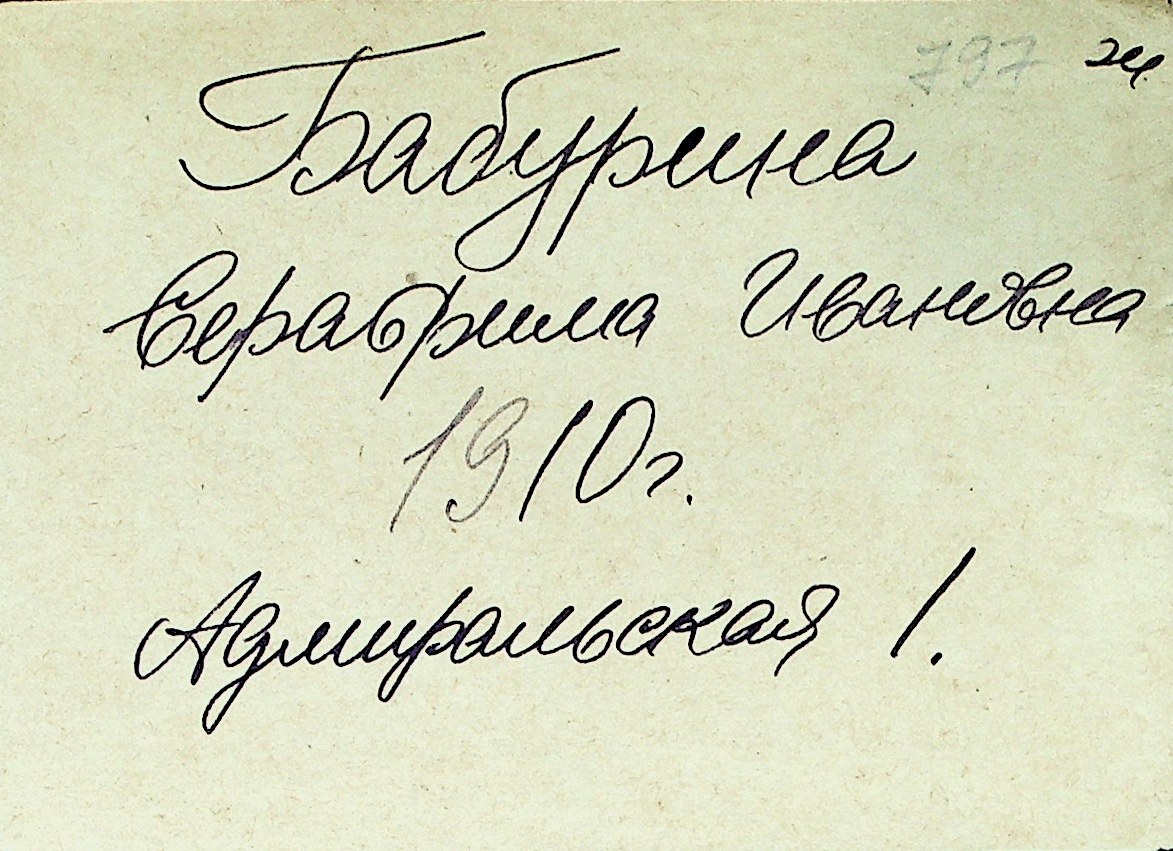 797
Бабурина
Серафима Ивановна
1910г.
Адмиральская 1.